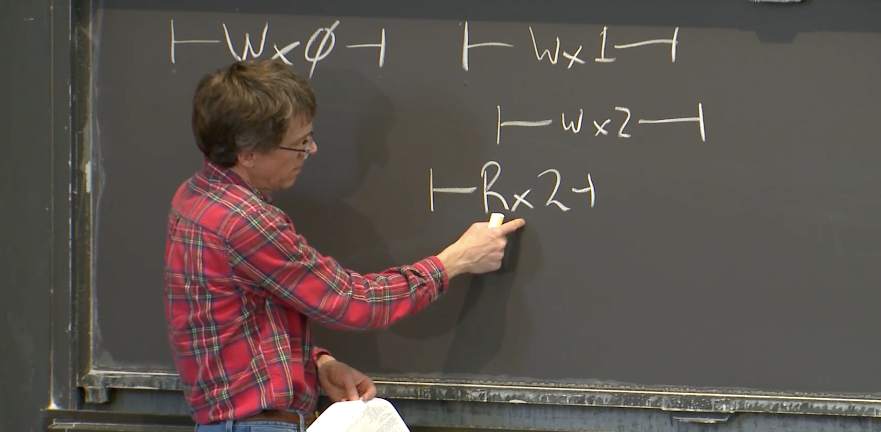 |—Wxφ—| |—Wx1—|
|—Wx2—|
|—Rx2—|